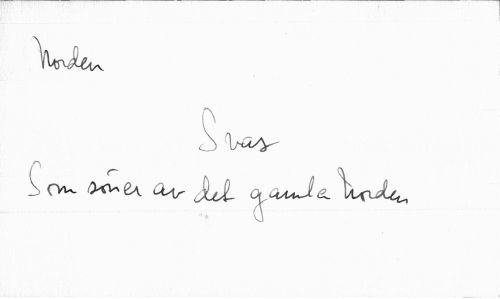 Norden
Svas
Som söner av det gamla Norden